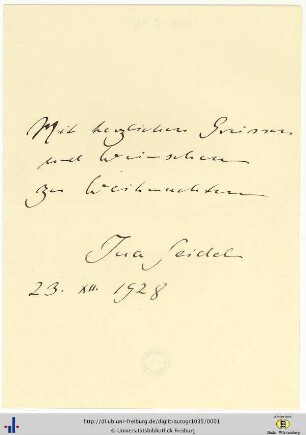 Mit herzlichen Grüssen
und Wünschen
zu Weihnachten
Ina Seidel
23. XII. 1928
http://dl.ub.uni-freiburg.de/diglit/autogr1035/0001
© Universitätsbibliothek Freiburg